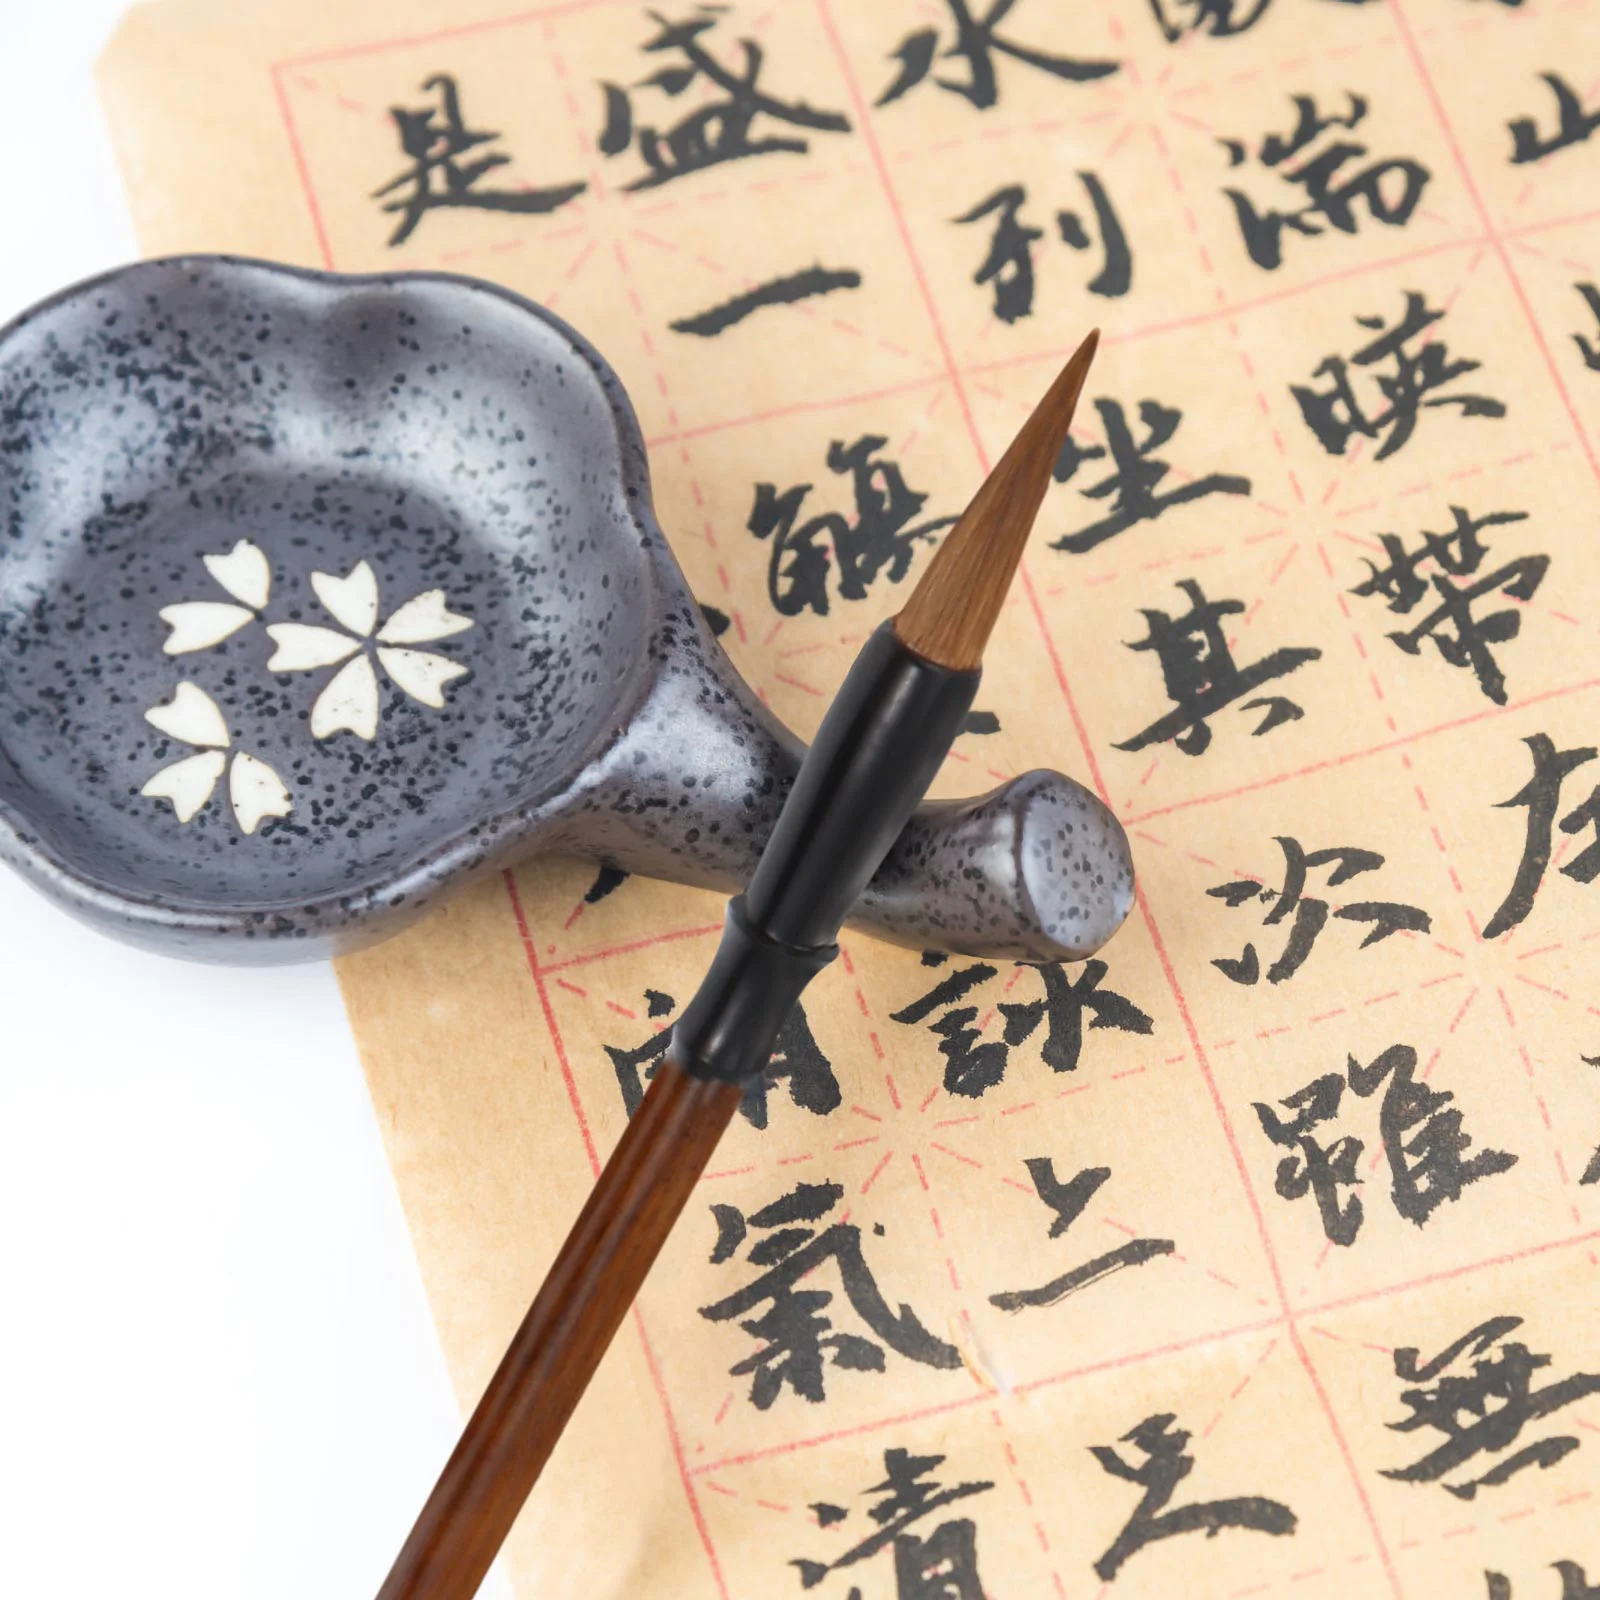 山
湍映帶左
水列坐其次雖無
盛一觴詠亦足
是氣清